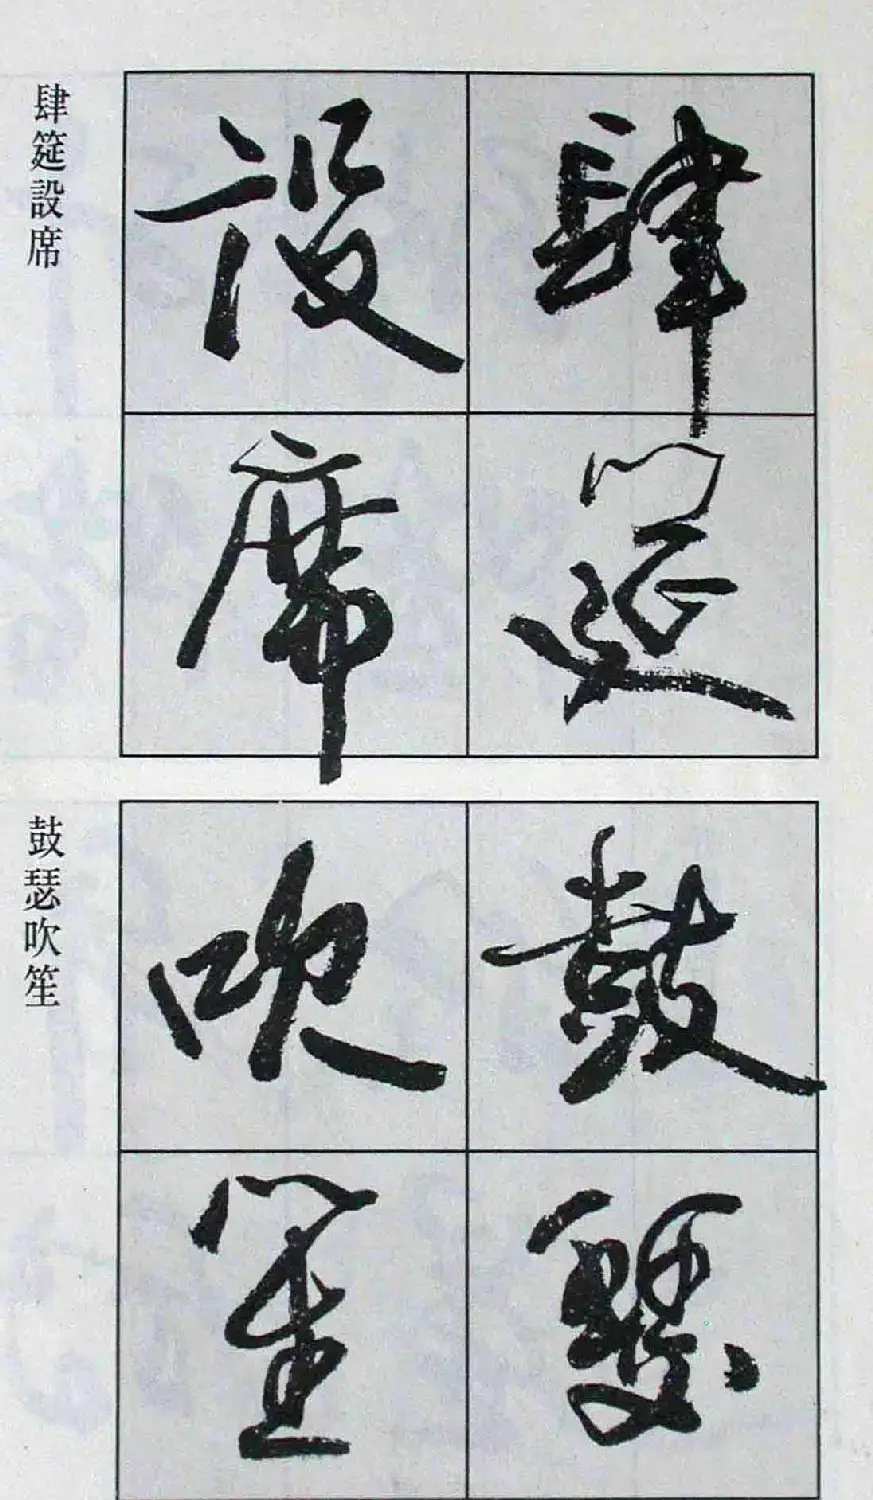 肆筵設席
肆筵
設席
鼓瑟吹笙
鼓瑟
吹笙